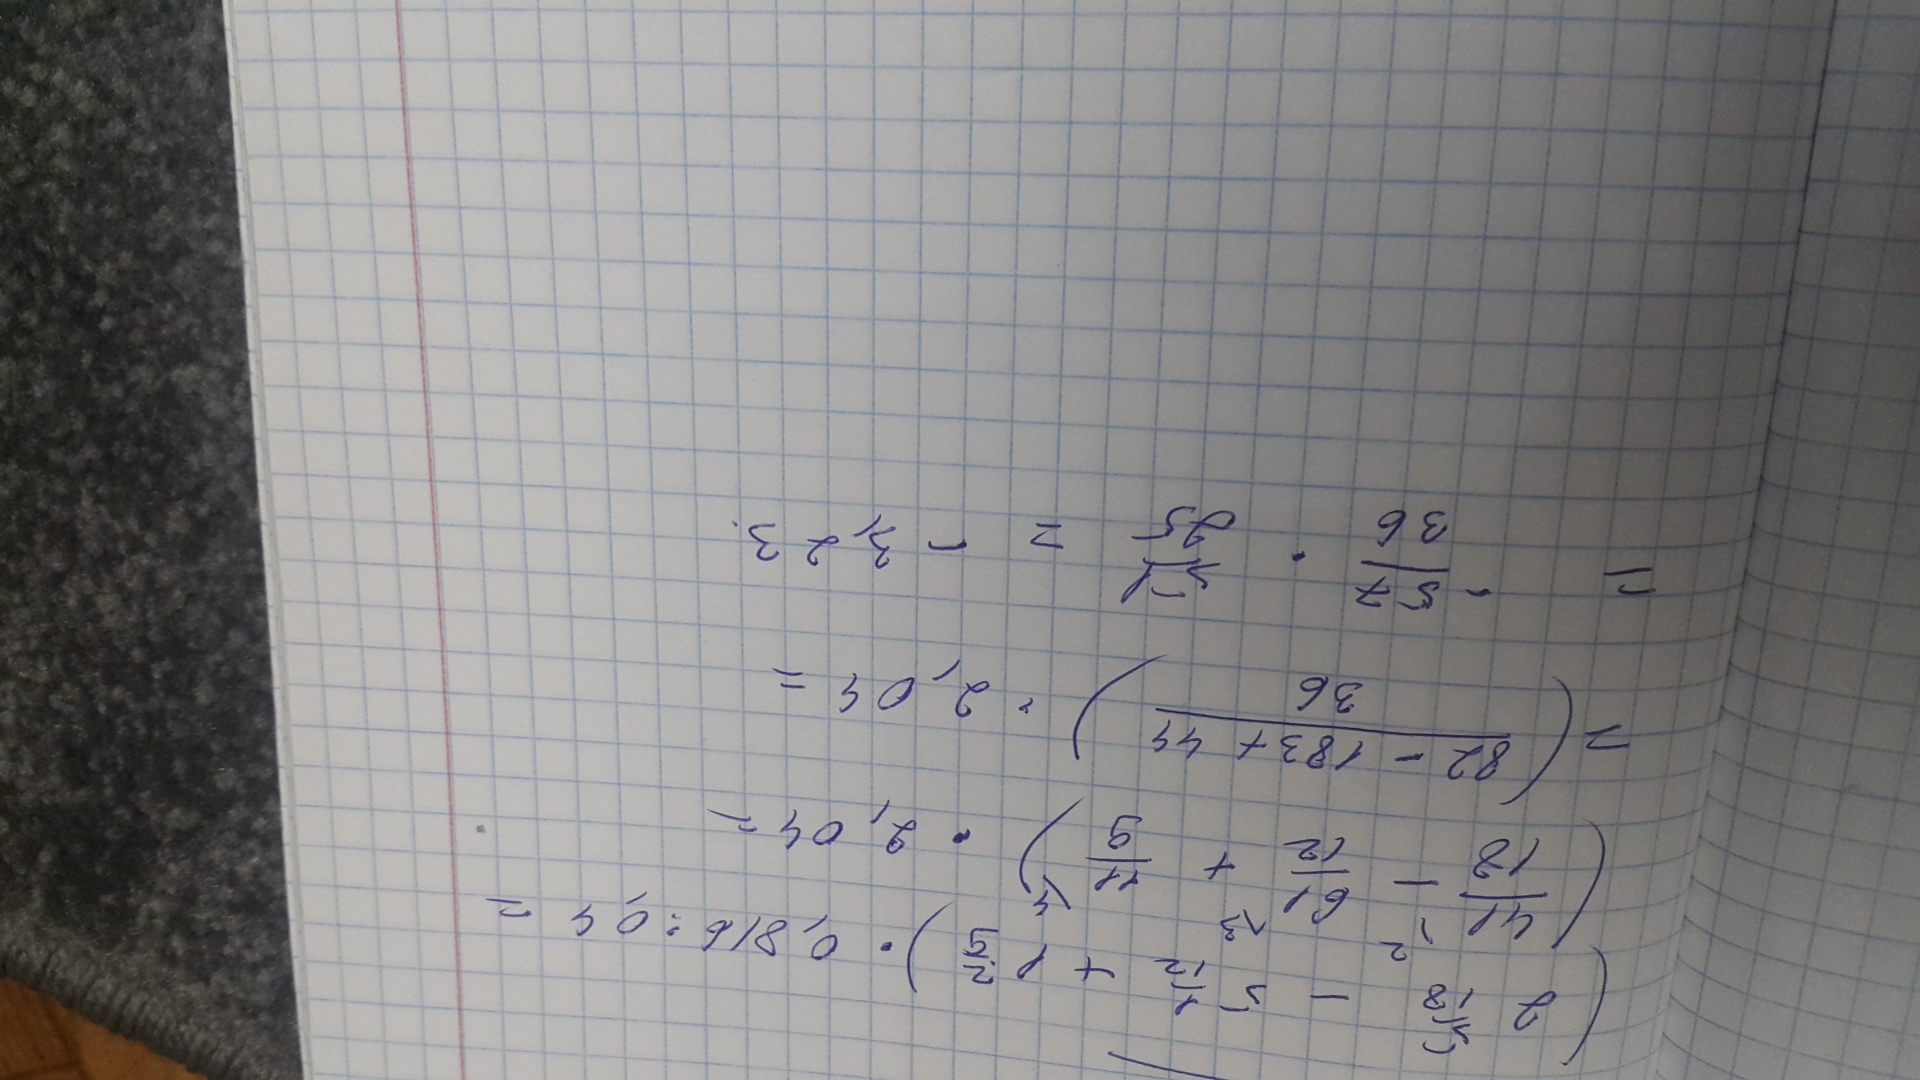 (2 5/18 − 5 1/12 + 1 2/9) · 0,816 : 0,4 =
(41/18 − 61/12 + 11/9) · 2,04 =
= (82 − 183 + 44 / 36) · 2,04 =
= - 57/36 · 51/25 = - 3,23.